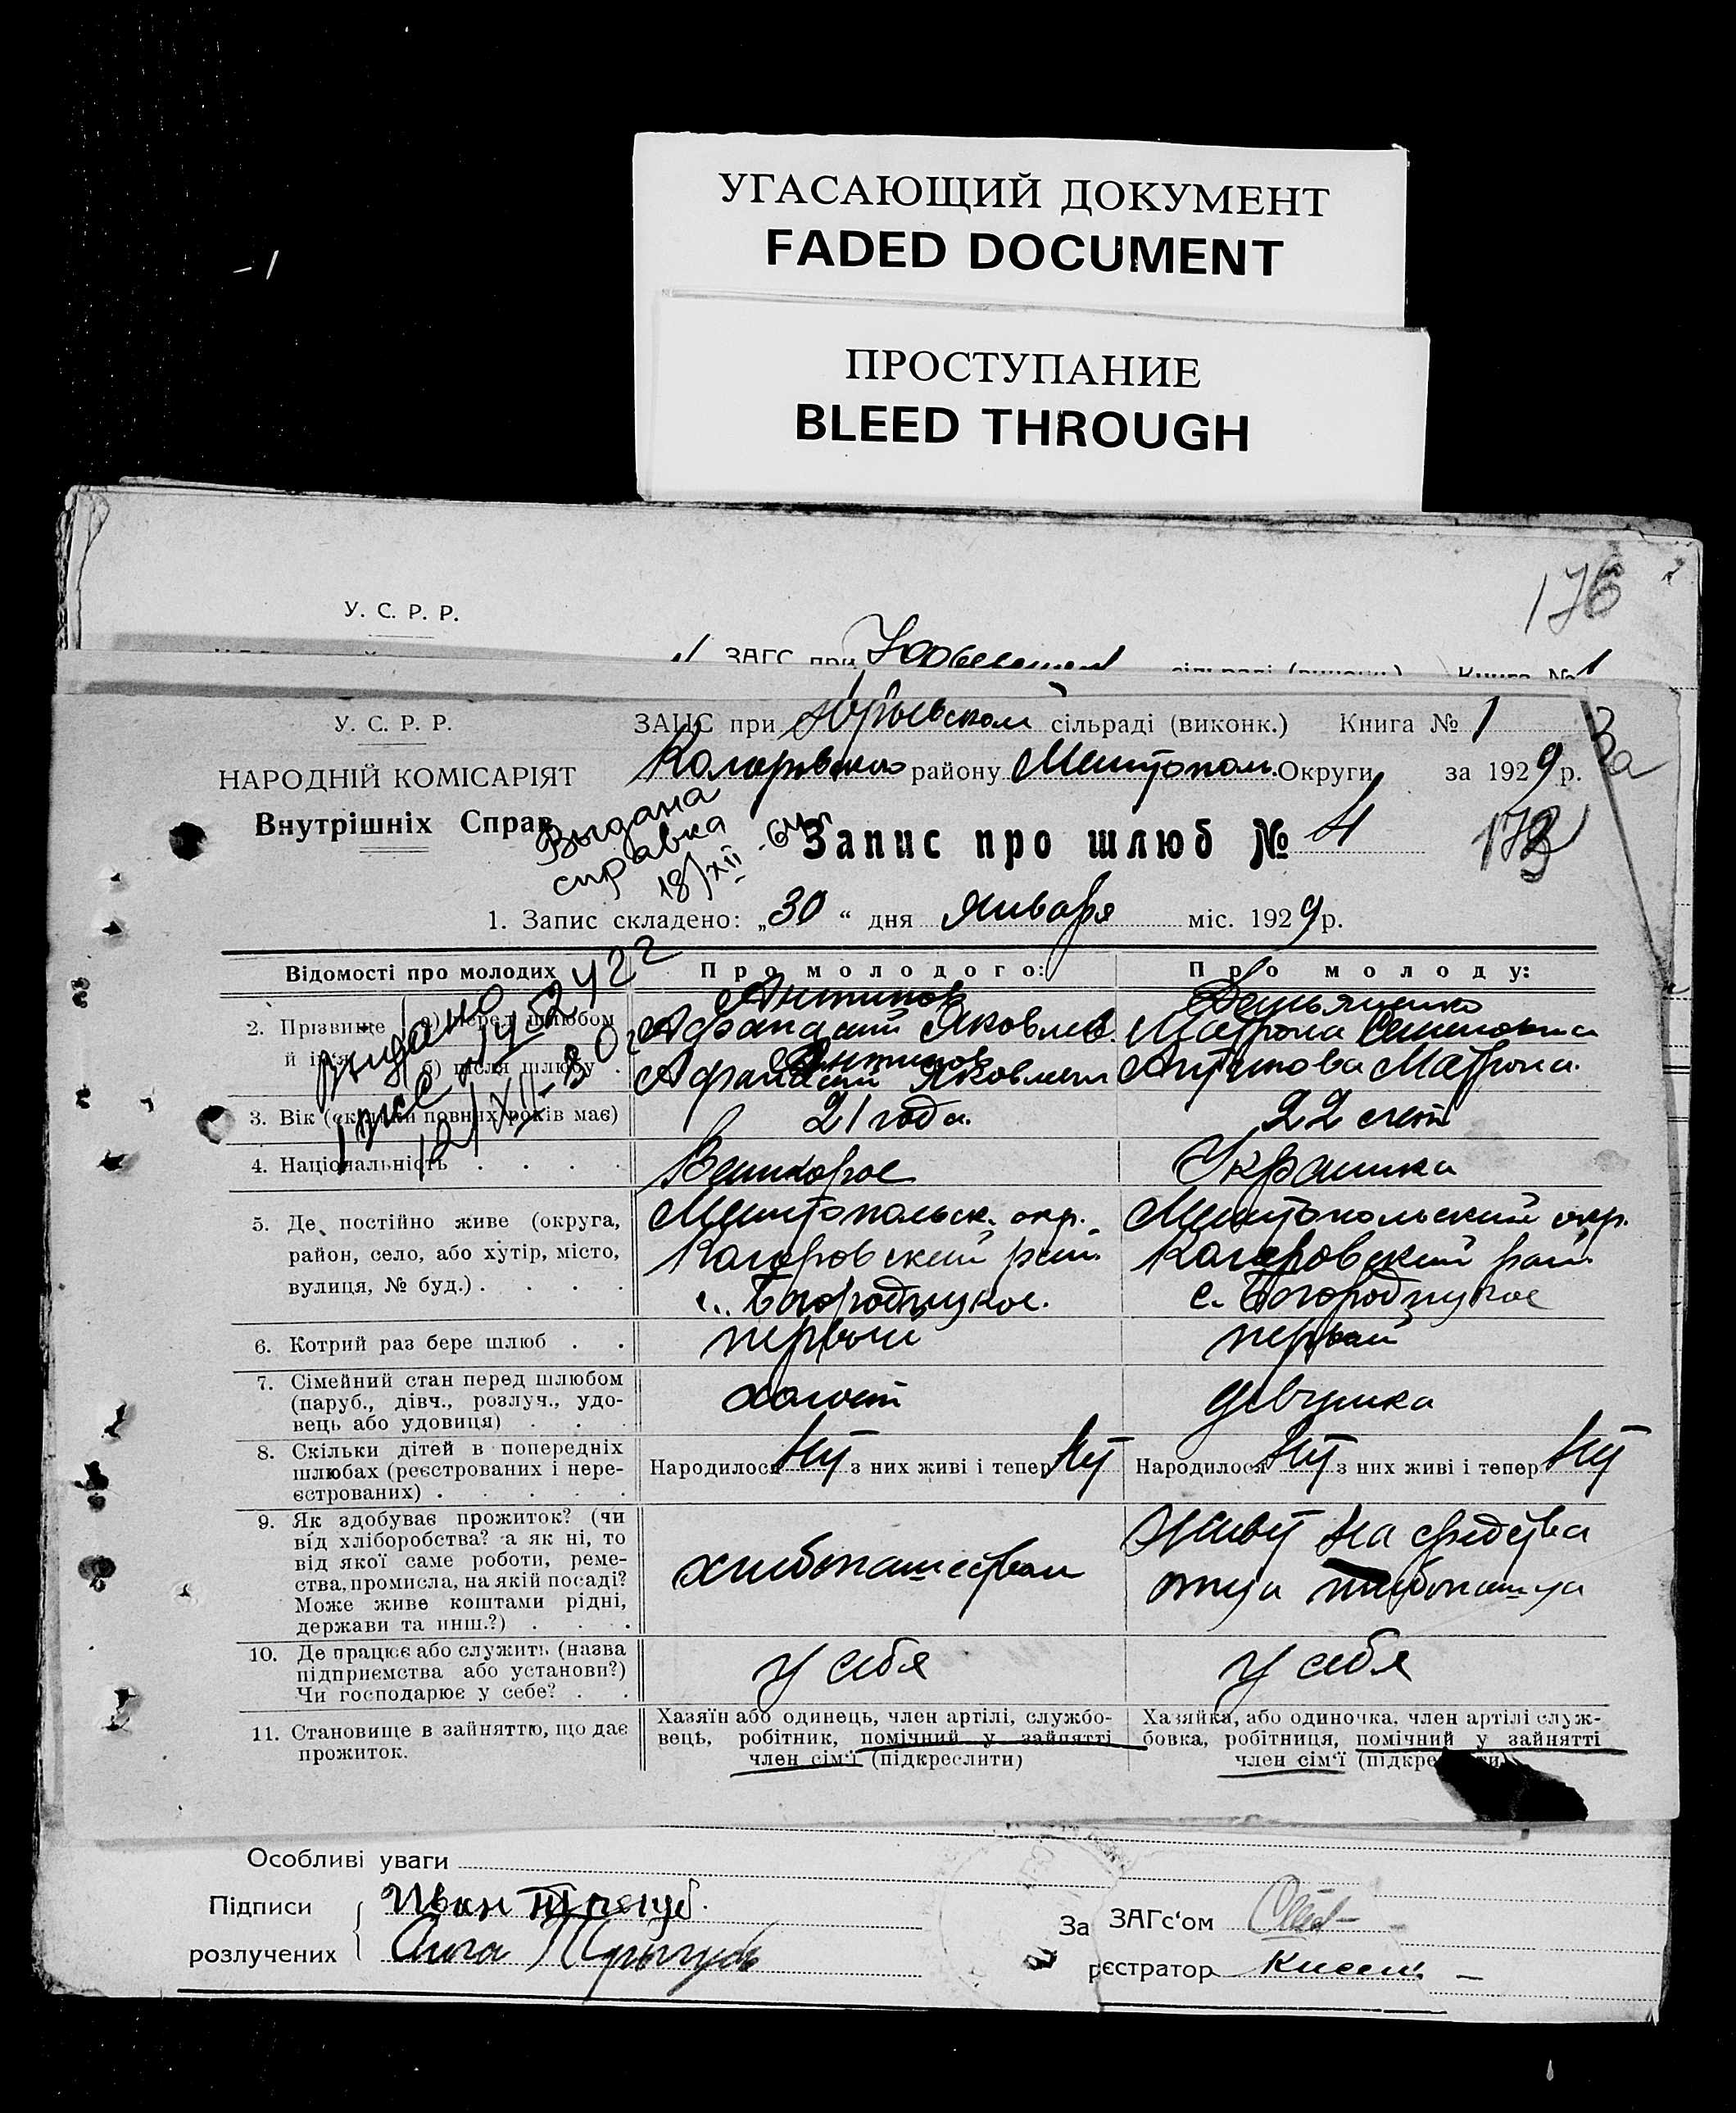 УГАСАЮЩИЙ ДОКУМЕНТ
FADED DOCUMENT
ПРОСТУПАНИЕ
BLEED THROUGH
176
У. С. Р. Р.
ЗАГС при
У. С. Р. Р.
ЗАЦС при Юрьевском сільраді (виконк.) Книга № 1
3а
НАРОДНІЙ КОМІСАРІЯТ
району Мелитопол. Округи за 1929 р.
Внутрішніх Справ
Выдана
справка
18/XII - 64 г.
Запис про шлюб № 4
1. Запис складено: „30“ дня Января міс. 1929 р.
Відомості про молодих
Про молодого:
Про молоду:
2. Прізвище й ім'я
а) перед шлюбом
Антипов
Афанасий Яковлев.
Демьяненко
Матрона Семеновна
б) після шлюбу
Антипов
Афанасий Яковлев
Антипова Матрона.
3. Вік (скільки повних років має)
21 года.
22 лет
4. Національність
Великорос
Украинка
5. Де постійно живе (округа,
район, село, або хутір, місто,
вулиця, № буд.)
Мелитопольск. окр.
рай.
с. Богородицкое.
Мелитопольский окр.
рай.
с. Богородицкое
6. Котрий раз бере шлюб
первый
первый
7. Сімейний стан перед шлюбом
(паруб., дівч., розлуч., удо-
вець або удовиця)
холост
девушка
8. Скільки дітей в попередніх
шлюбах (реєстрованих і нере-
єстрованих)
Народилося Нет з них живі і тепер Нет
Народилося Нет з них живі і тепер Нет
9. Як здобуває прожиток? (чи
від хліборобства? а як ні, то
від якої саме роботи, реме-
ства, промисла, на якій посаді?
Може живе коштами рідні,
держави та инш.?)
хлебопашеством
Живет на средства
отца хлебопашца
10. Де працює або служить (назва
підприємства або установи?)
Чи господарює у себе?
у себя
у себя
11. Становище в зайняттю, що дає
прожиток.
Хазяїн або одинець, член артілі, службо-
вець, робітник, помічний у зайнятті
член сім'ї (підкреслити)
Хазяйка, або одиночка, член артілі служ-
бовка, робітниця, помічний у зайнятті
член сім'ї
Особливі уваги
Підписи
розлучених
Иван
За ЗАГс'ом
рєстратор